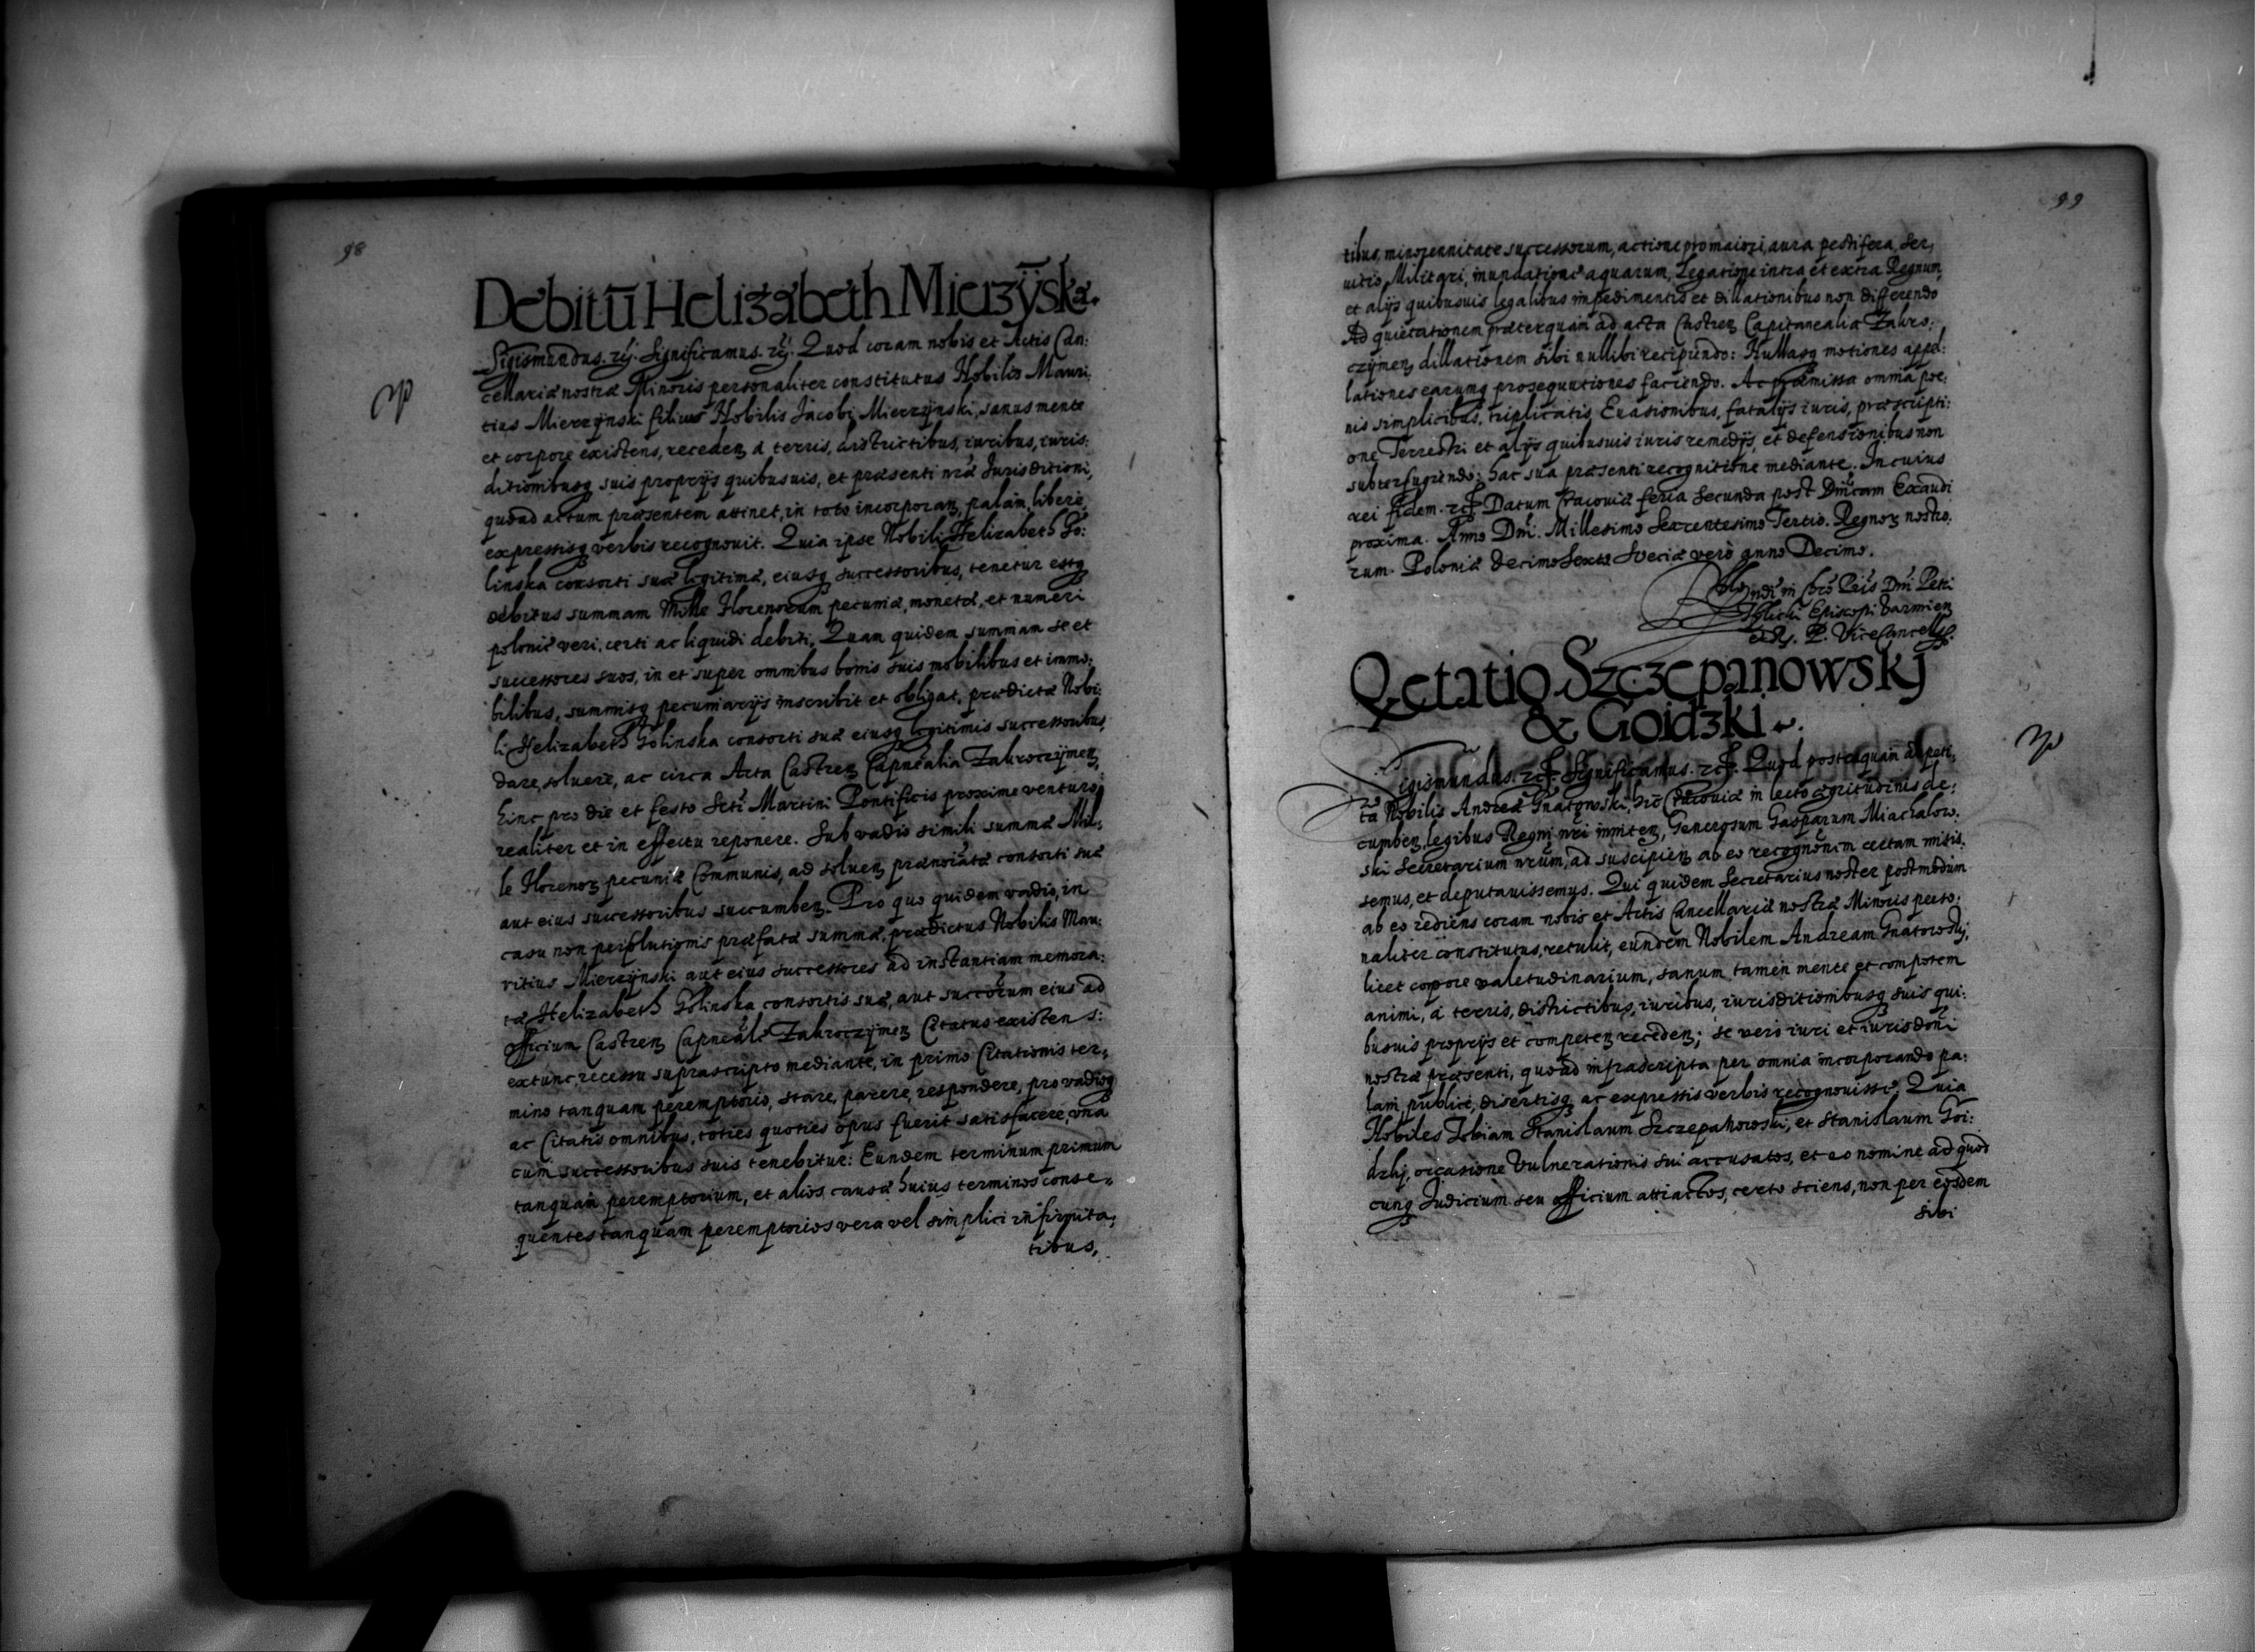 98
Debitū Helizabeth Mierzÿska.
Sigismundus. rz̄. Significamus. rz̄. Quod coram nobis et Actis Can:
cellariæ nostræ Minoris personaliter constitutus Nobilis Mauri:
tius Mierzÿnski filius Nobilis Jacobi Mierzÿnski, sanus mente
et corpore existens, recedeñ a terris, districtibus, iuribus, iuris:
ditionibusq suis proprijs quibusuis, et præsenti nr̄æ Jurisditioni,
quoad actum præsentem attinet, in toto incorporañ, palam, libere,
expressisq verbis recognouit. Quia ipse Nobili Helizabeth Go:
linska consorti suæ legitimæ, eiusq successoribus, tenetur estq
debitus summam Mille Florenorum pecuniæ, monetæ, et numeri
polonic̄ veri, certi ac liquidi debiti, Quam quidem summam se et
successores suos, in et super omnibus bonis suis mobilibus et immo:
bilibus, summisq pecuniarijs inscribit et obligat, prædictæ Nobi:
li Helizabeth Golinska consorti suæ eiusq legitimis successoribus,
dare, soluere, ac circa Acta Castreñ Capnealia Zakroczÿmeñ,
hinc pro die et festo Scti Martini Pontificis proxime venturo,
realiter et in effectu reponere. Sub vadio simili summæ Mil:
le Florenoȝ pecuniæ Communis, ad solueñ prænoiatæ consorti suæ
aut eius successoribus succumbeñ. Pro quo quidem vadio, in
casu non persolutionis præfatæ summæ, prædictus Nobilis Mau:
ritius Mierzÿnski aut eius successores ad instantiam memora:
tæ Helizabeth Golinska consortis suæ, aut succōrum eius ad
officium Castreñ Capneale Zakroczÿmeñ Citatus existens:
extunc, recessu suprascripto mediante, in primo Citationis ter:
mino tanquam peremptorio, stare, parere, respondere, pro vadioq
ac Citatis omnibus, toties quoties opus fuerit satisfacere, vna
cum successoribus suis tenebitur: Eundem terminum primum
tanquam peremptorium, et alios causæ huius terminos conse:
quentes tanquam peremptorios vera vel simplici infirmita:
tibus,
99
tibus, minorennitate successorum, actione pro maiori, aura pestifera, ser:
uitio Militari, inundatione aquarum, Legatione intra et extra Regnum,
et alijs quibusuis legalibus impedimentis et dillationibus non differendo
Ad quietationem præterquam ad acta Castreñ Capitanealia Zakro:
czÿmeñ dillationem sibi nullibi recipiendo: Nullasq motiones appel:
lationes earumq prosequutiones faciendo. Ac præmissa omnia poe:
nis simplicibus, triplicatis, Euasionibus, fatalijs iuris, præscripti:
one Terrestri et alijs quibusuis iuris remedijs, et defensionibus non
subterfugiendo; hac sua præsenti recognitione mediante. In cuius
rei fidem. rzt. Datum Cracouiæ feria Secunda post Dnīcam Exaudi
proxima. Anno Dnī. Millesimo Sexcentesimo Tertio. Regnoȝ nostro:
rum. Poloniæ decimo Sexto Sveciæ vero anno Decimo.
Petri
Episcopi Varmieñ
R. P. ViceCancell
Qetatio Szczepanowskj
& Goidzki
Sigismundus. rzt. Significamus. rzt. Quod posteaquam ad peti:
ta Nobilis Andreæ Gnatowski, hic Cracouiæ in lecto ægritudinis de:
cumbeñ, legibus Regni nr̄i inniteñ, Generosum Gasparum Miachalow:
ski Secretarium nr̄um, ad suscipieñ ab eo recognōnem certam misis:
semus, et deputauissemus. Qui quidem Secretarius noster postmodum
ab eo rediens coram nobis et Actis Cancellariæ nostræ Minoris perso:
naliter constitutus, retulit, eundem Nobilem Andream Gnatowskj,
licet corpore valetudinarium, sanum tamen mente et compotem
animi, a terris, districtibus, iuribus, iurisditionibusq suis qui:
busuis proprijs et competeñ recedeñ; se vero iuri et iurisdōni
nostræ præsenti, quoad infrascripta per omnia incorporando pa:
lam, publice, disertisq ac expressis verbis recognouisse. Quia
Nobiles Tobiam Stanislaum Szczepanowski, et Stanislaum Goi:
dzkj, occasione Vulnerationis sui accusatos, et eo nomine ad quod
cunq Judicium seu officium attractos, certo sciens, non per eosdem
sibi